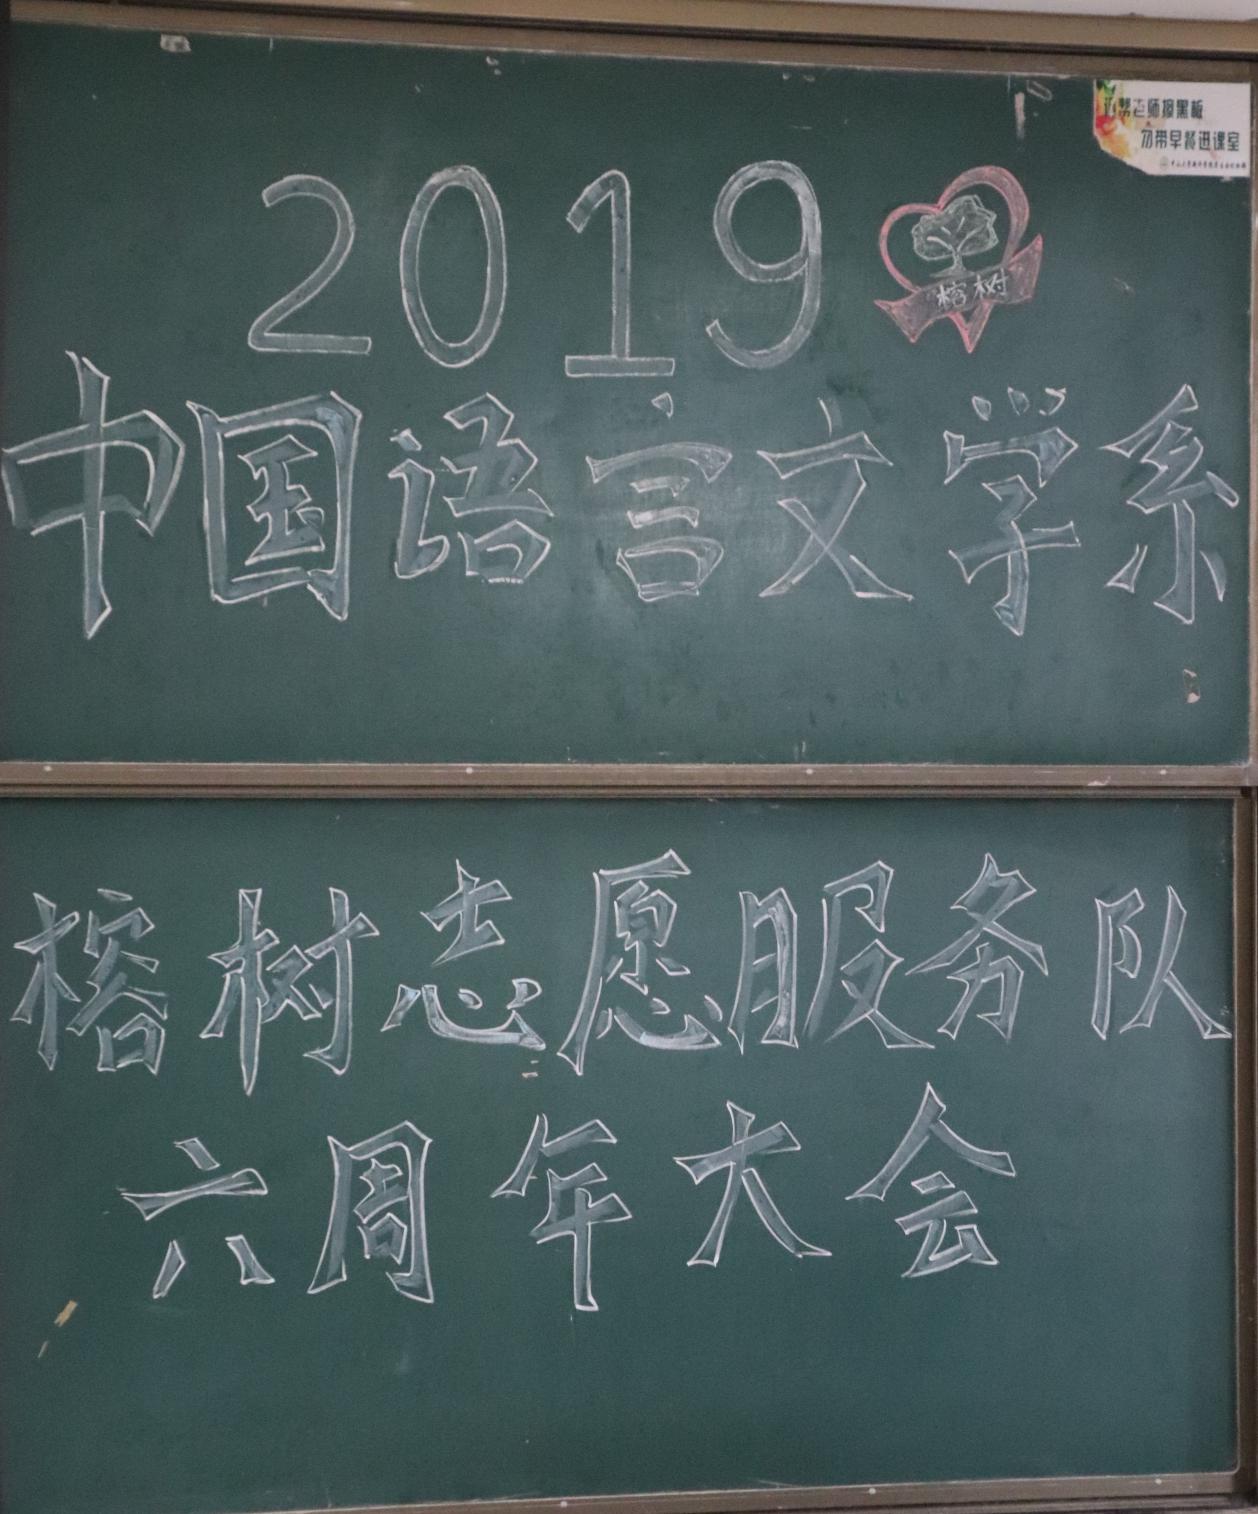 请帮老师擦黑板
勿带早餐进课室
2019
榕树
中国语言文学系
榕树志愿服务队
六周年大会